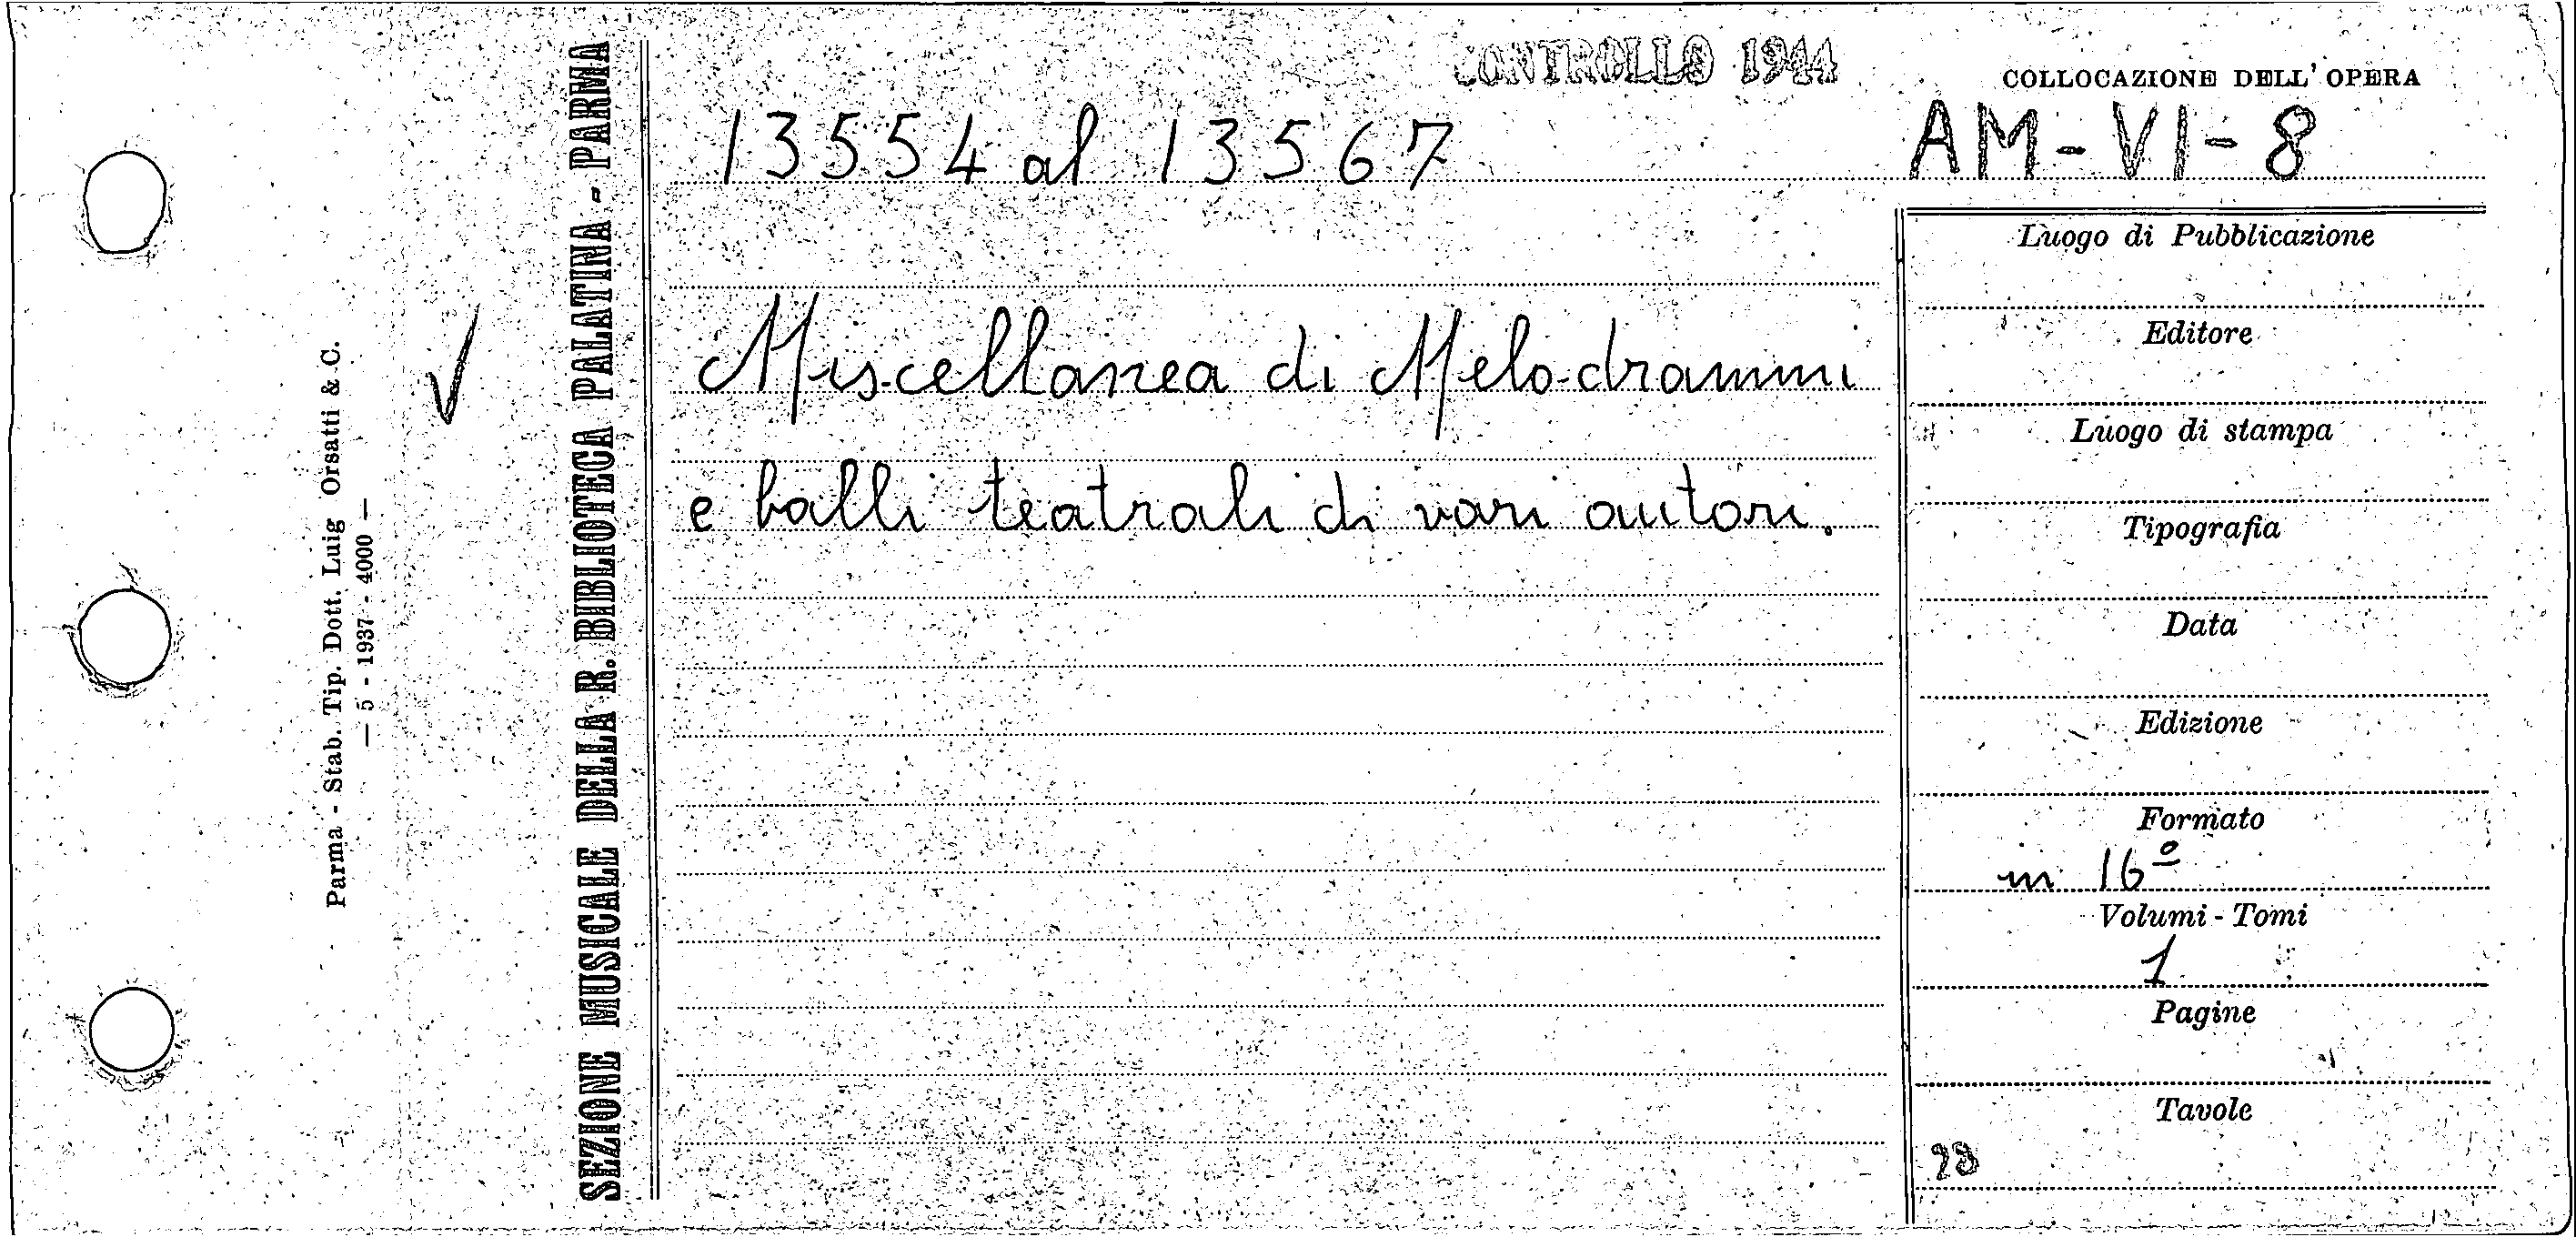 CONTROLLO 1944
COLLOCAZIONE DELL' OPERA
13554 al 13567
AM-VI-8
Miscellanea di Melodrammi
e balli teatrali di vari autori.
Luogo di Pubblicazione
Editore
Luogo di stampa
Tipografia
Data
Edizione
Formato
in 16º
Volumi - Tomi
1
Pagine
Tavole
SEZIONE MUSICALE DELLA R. BIBLIOTECA PALATINA - PARMA
Parma - Stab. Tip. Dott. Luig Orsatti & C.
— 5 - 1937 - 4000 —